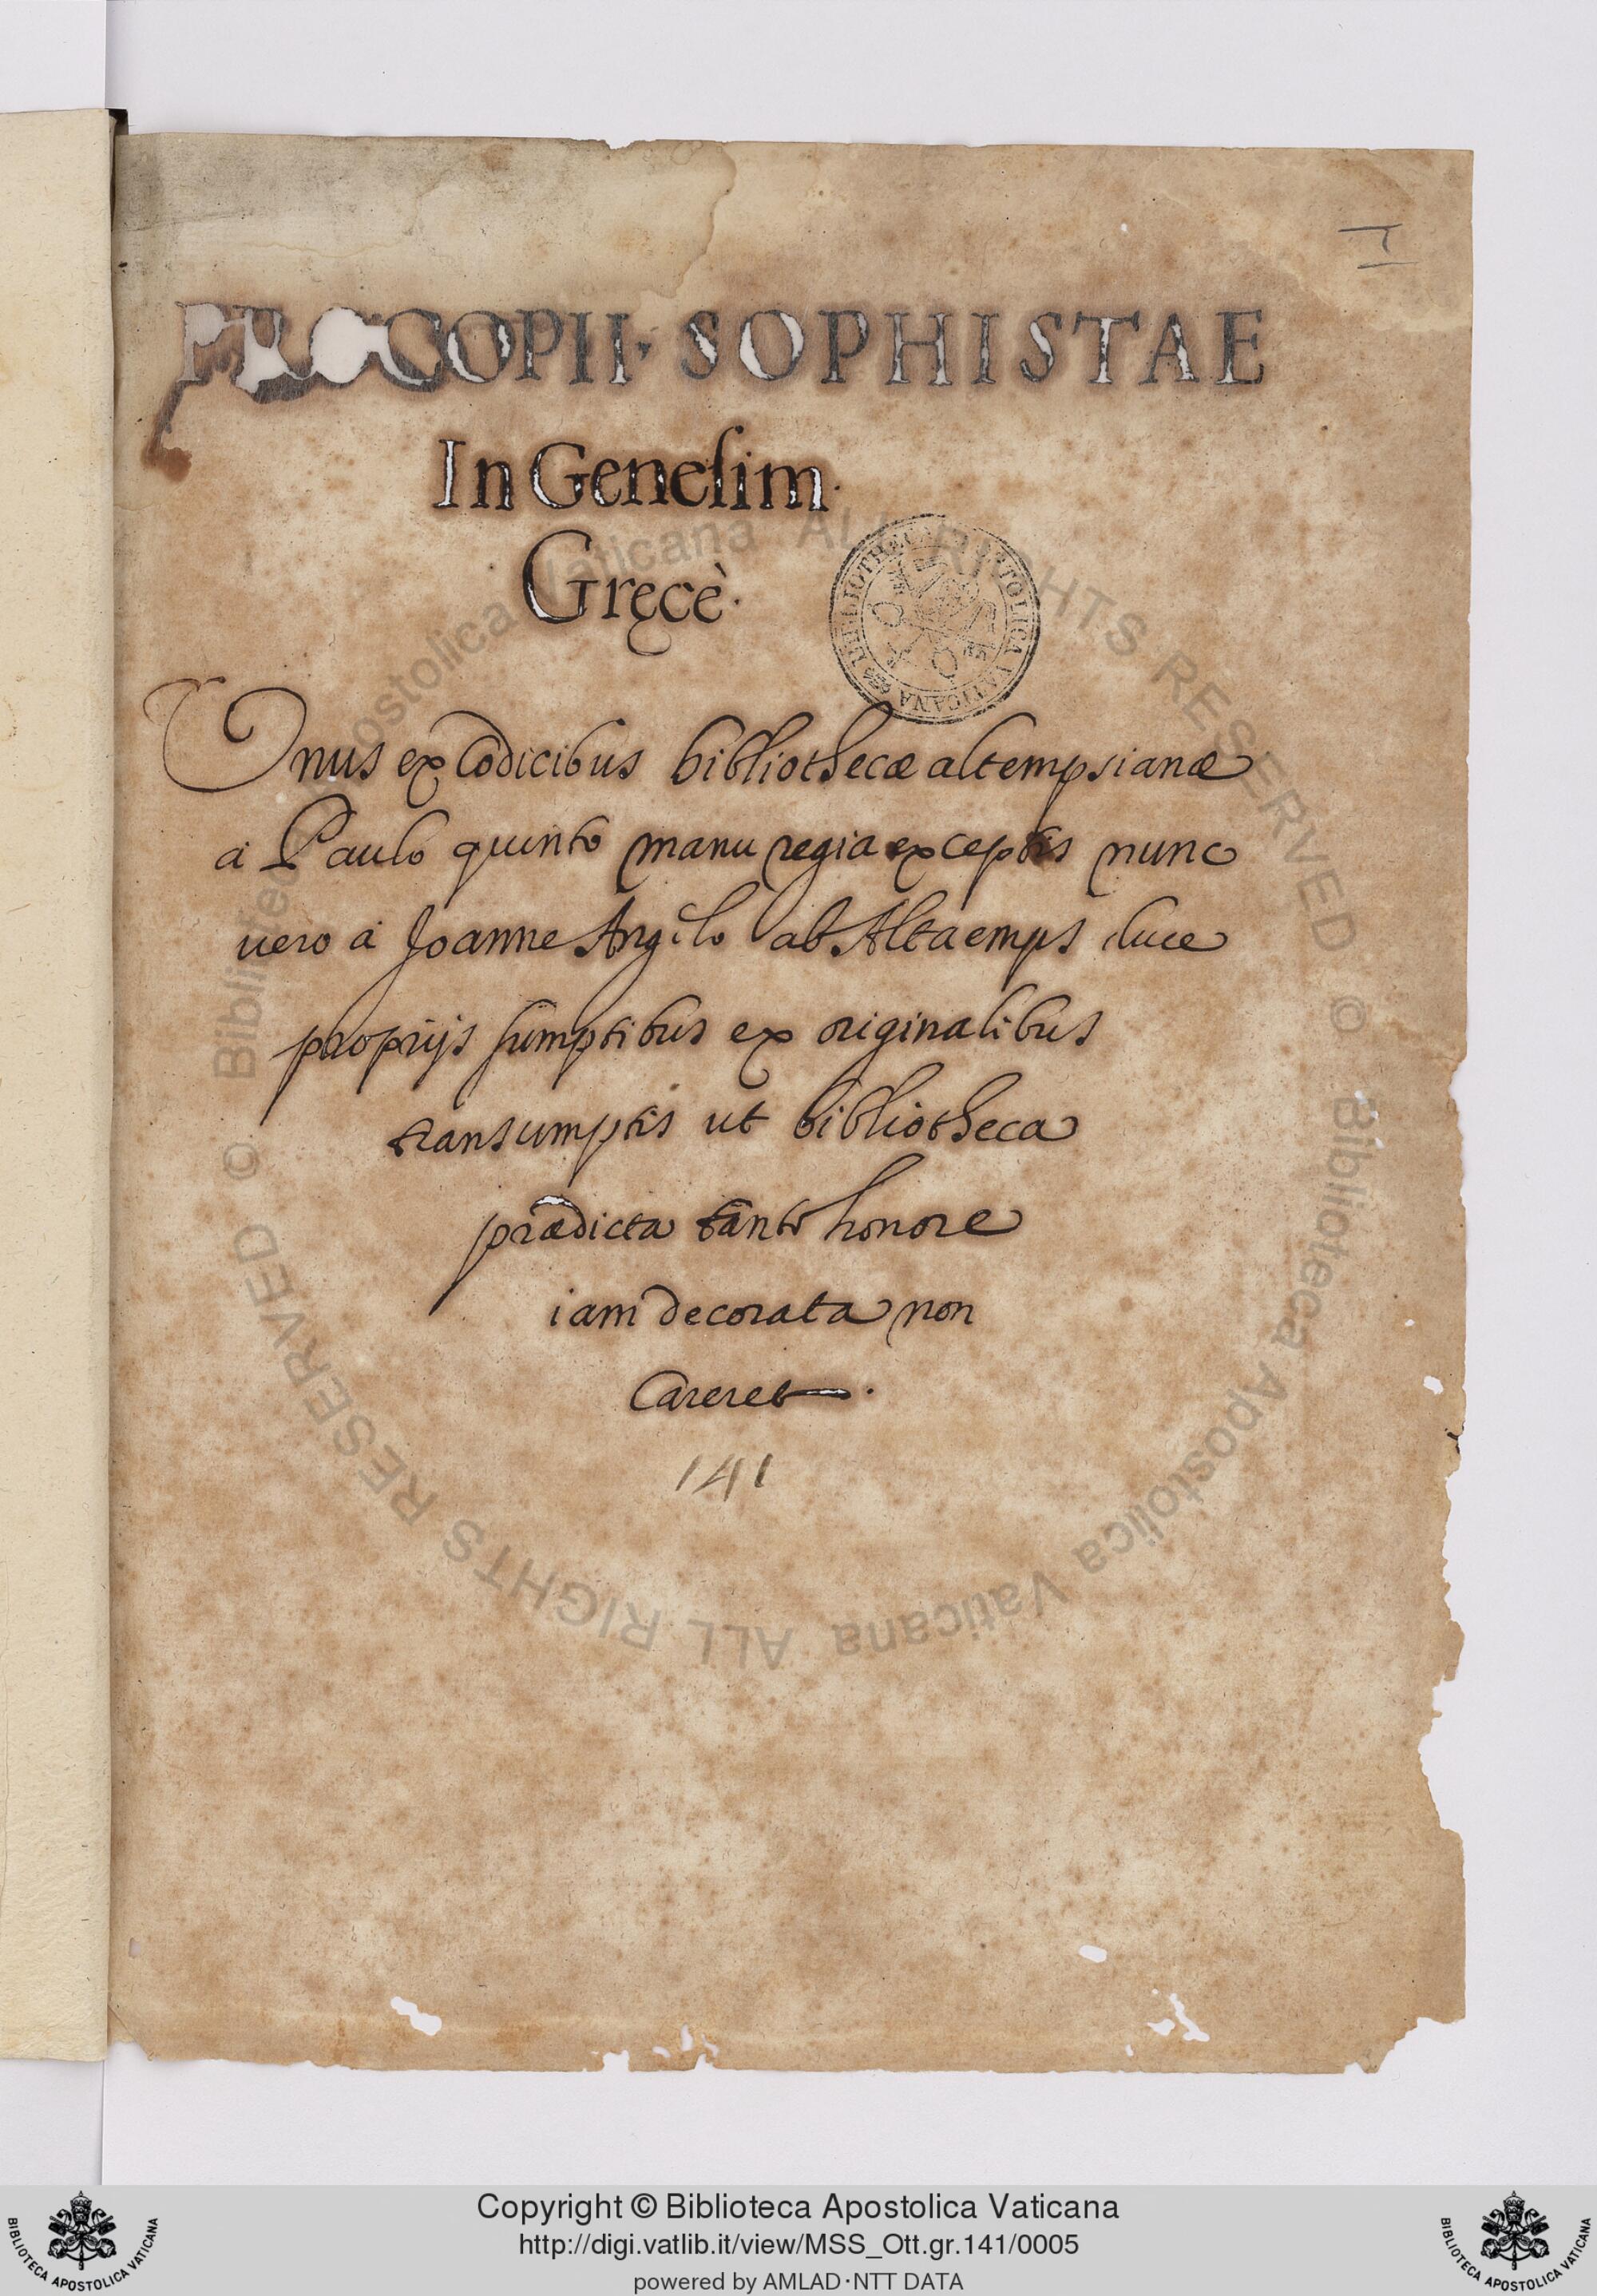 I
PROCOPII · SOPHISTAE
In Genesim.
Gręcè.
BIBLIOTHECA APOSTOLICA VATICANA
Vnus ex Codicibus bibliothecæ altempsianæ
a Paulo quinto manu regia exceptis nunc
uero a Joanne Angelo ab Altaemps duce
proprijs sumptibus ex originalibus
transumptis ut bibliotheca
prædicta tanto honore
iam decorata non
Careret.
141
© Biblioteca Apostolica Vaticana ALL RIGHTS RESERVED © Biblioteca Apostolica Vaticana ALL RIGHTS RESERVED
Copyright © Biblioteca Apostolica Vaticana
http://digi.vatlib.it/view/MSS_Ott.gr.141/0005
powered by AMLAD·NTT DATA
BIBLIOTECA APOSTOLICA VATICANA
BIBLIOTECA APOSTOLICA VATICANA